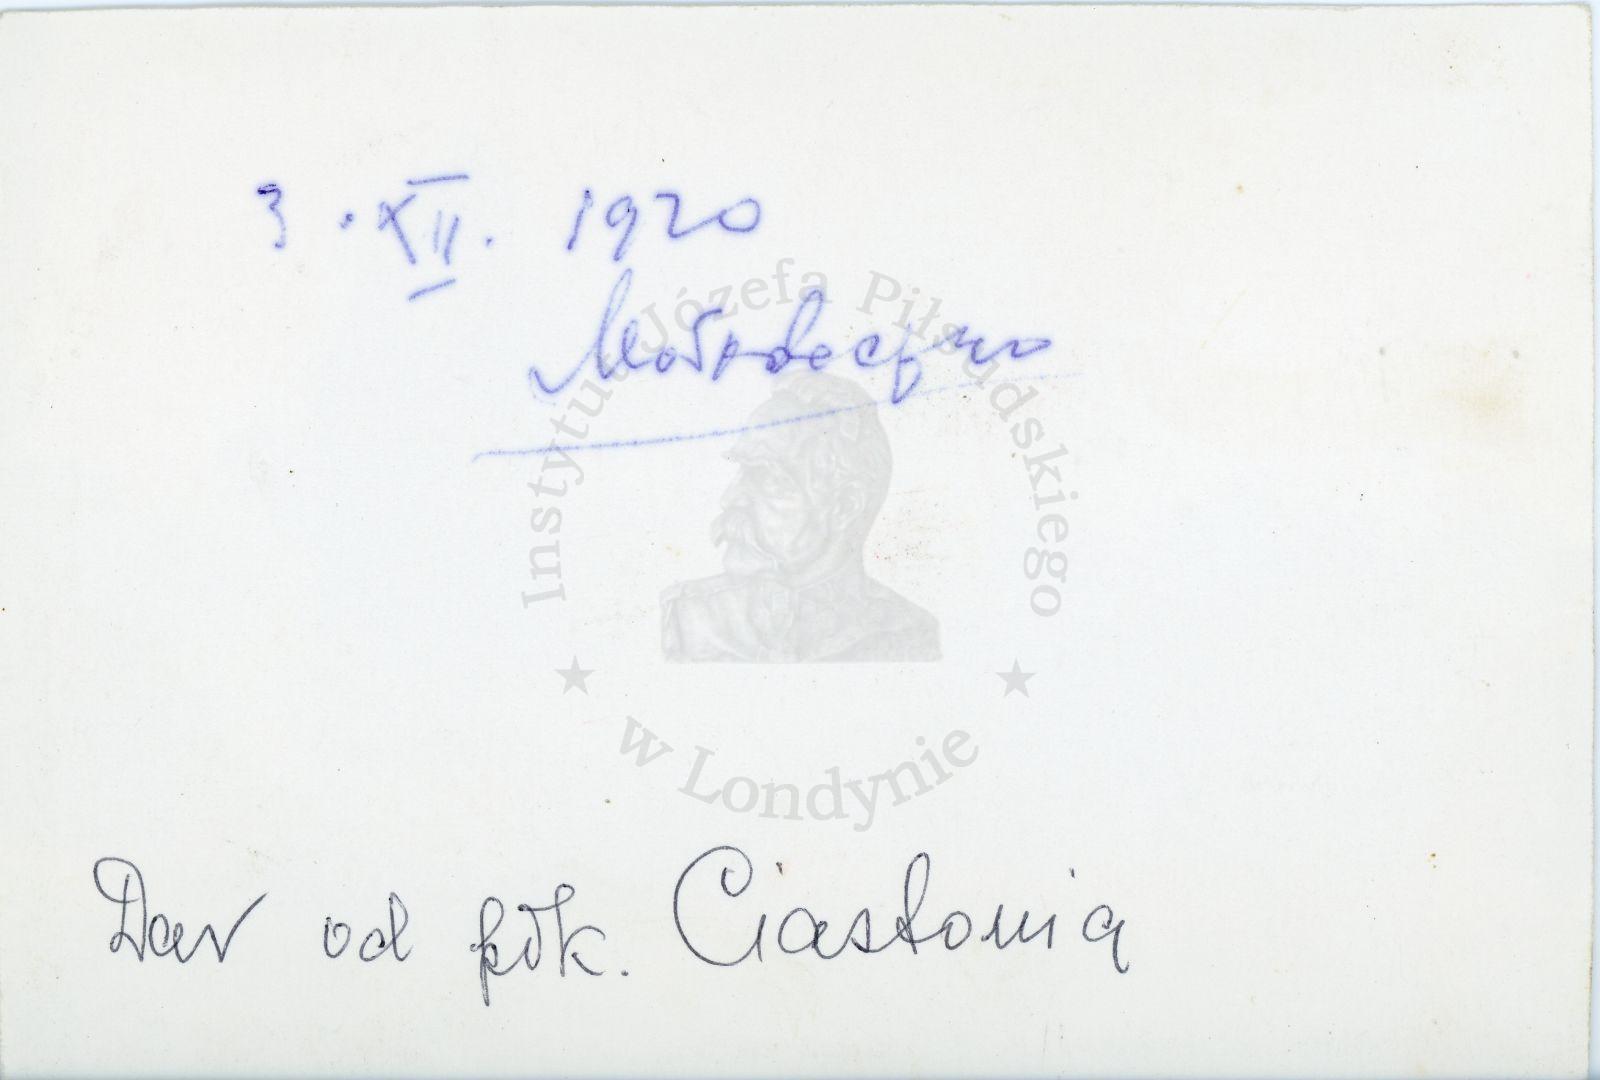 3. XII. 1920
Mołodeczno
Instytut Józefa Piłsudskiego
w Londynie
Dar od płk. Ciastonia